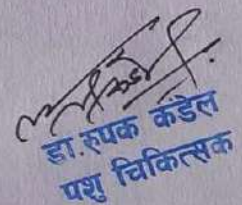 डा. रुपक कंडेल
पशु चिकित्सक